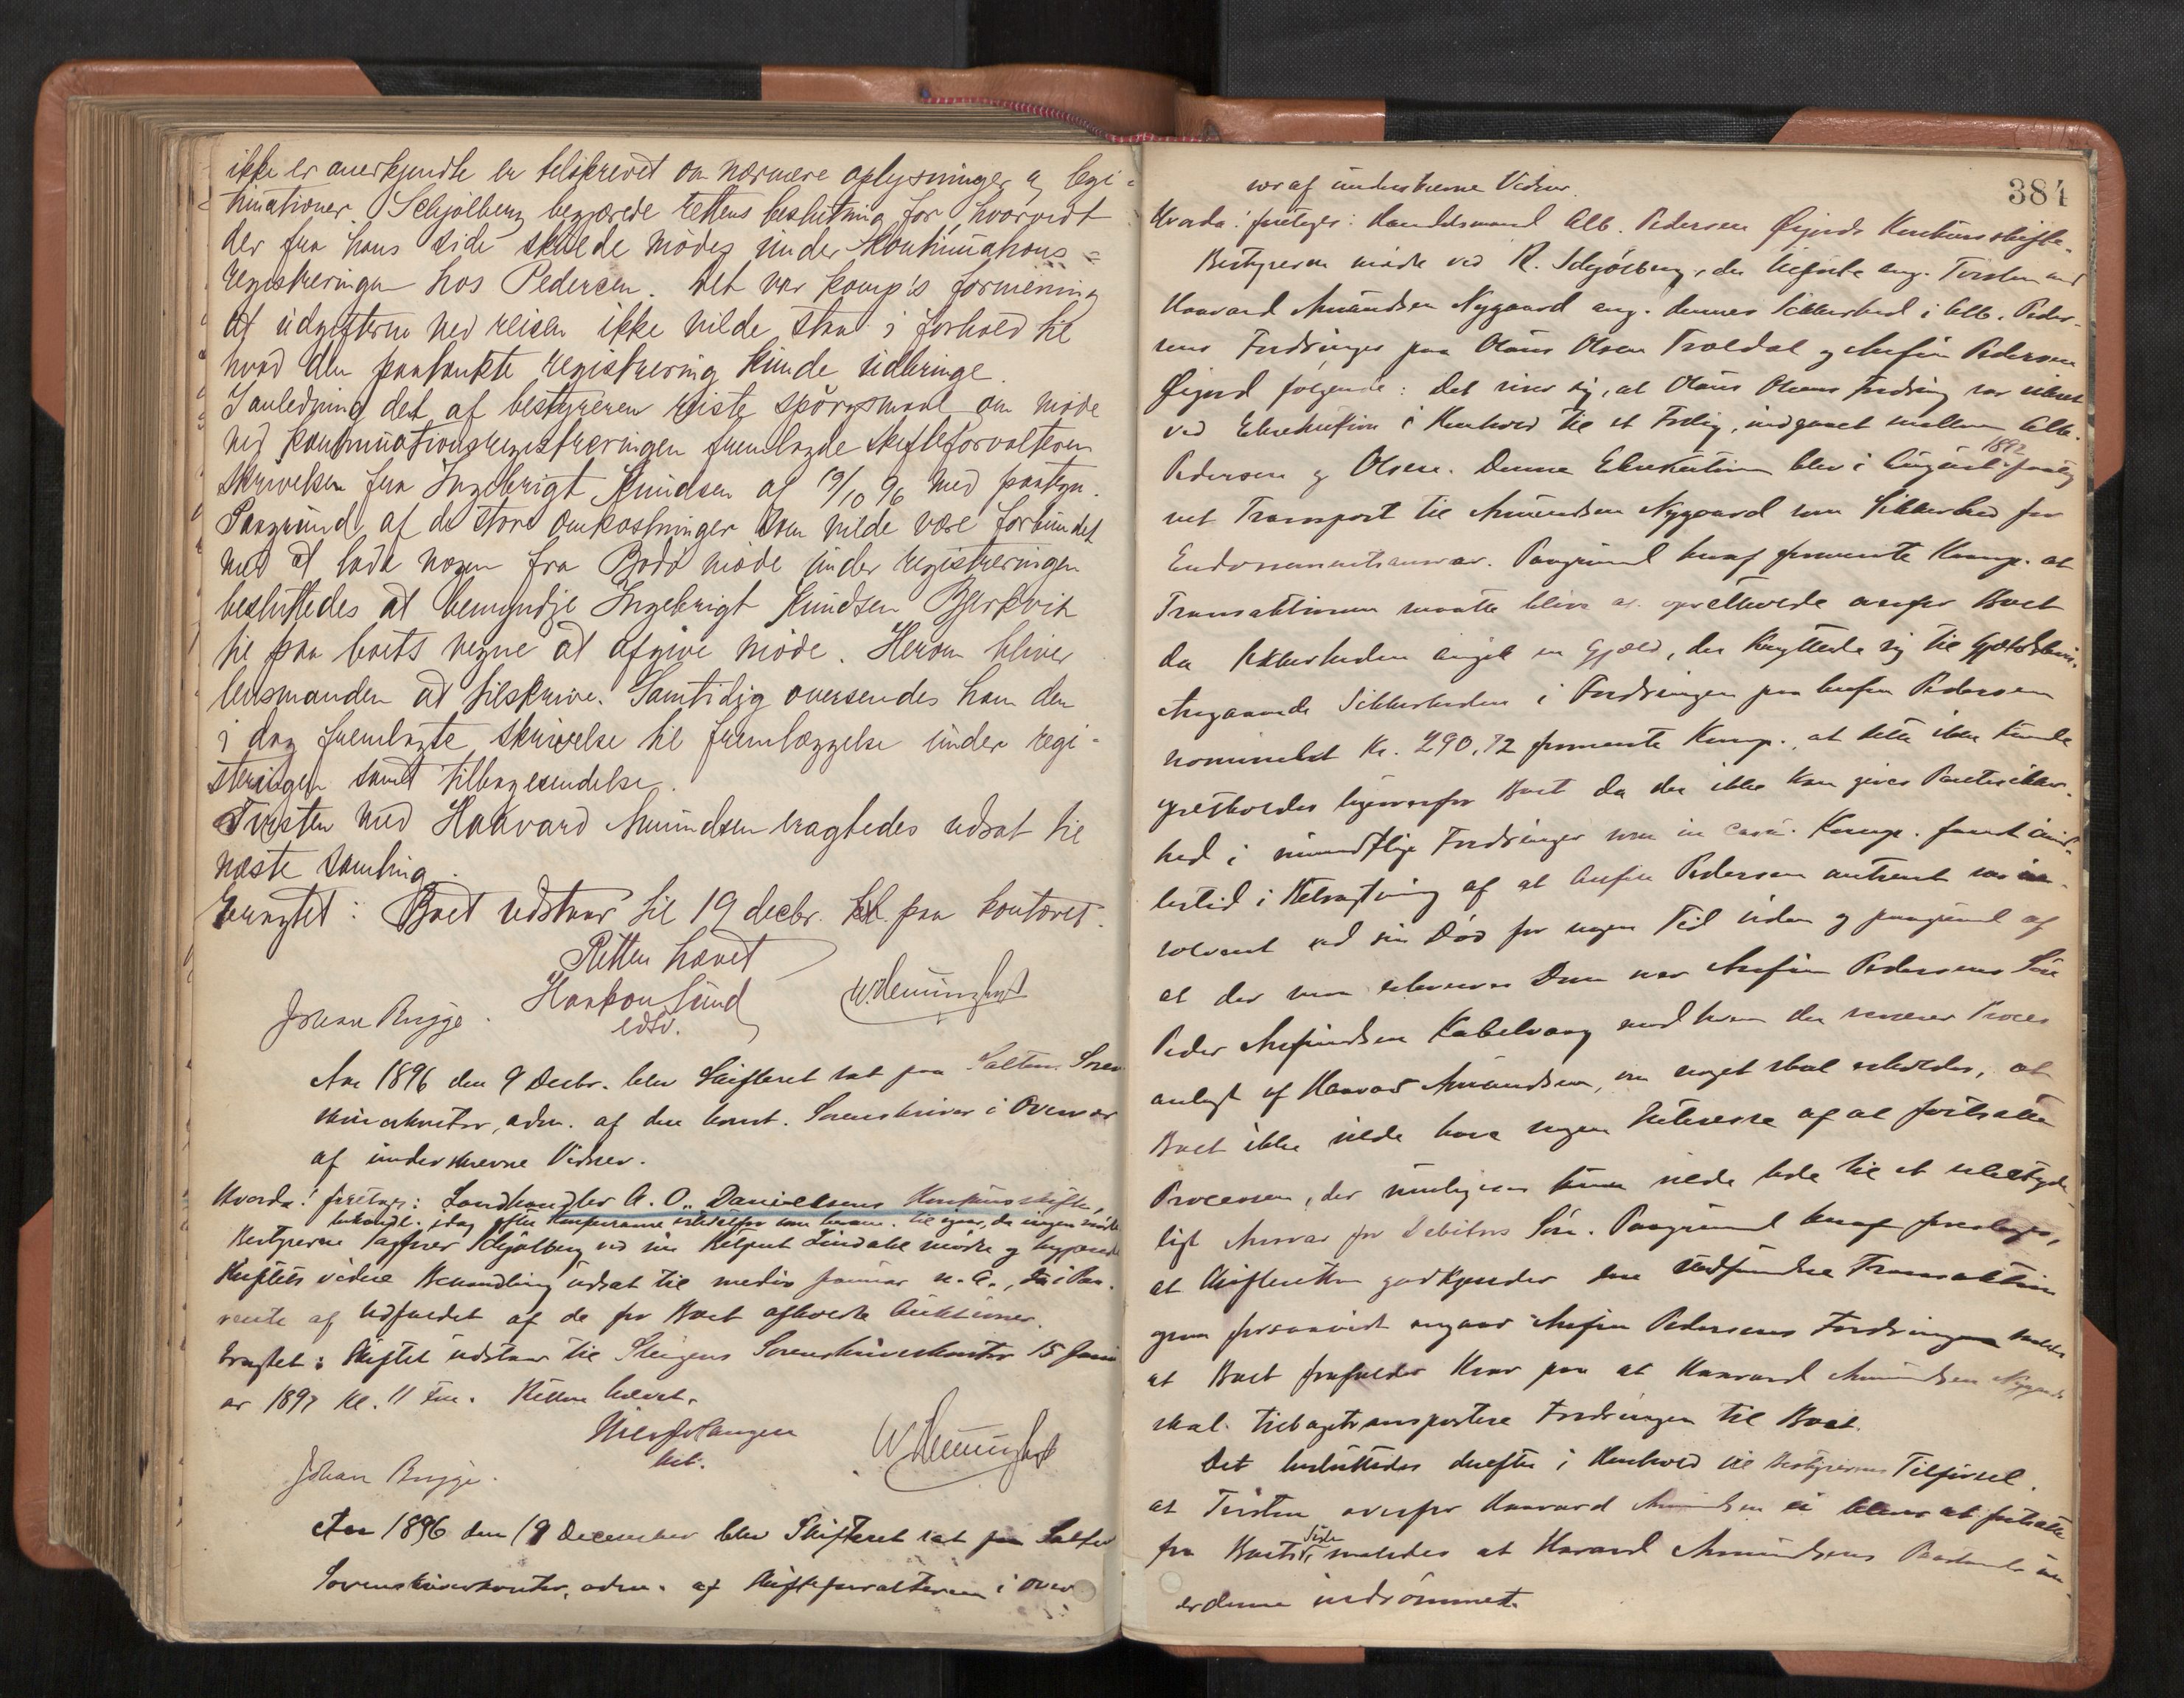 ikke er anerkjendte er tilskrevet om nærmere oplysninger og legi-
timationer. Schjølberg begjærede rettens beslutning for, hvorvidt
der fra hans side skulde mödes under Kontinuations-
registreringen hos Pedersen. Det var komp's formening
at udgifterne ved reisen ikke vilde staa i forhold til
hvad den paatænkte registrering kunde udbringe.
I anledning det af bestyreren reiste spörgsmaal om möde
ved kontinuationsregistreringen fremlagde skifteforvalteren
skrivelse fra Ingebrigt Knudsen af 19/10 96 med paategn.
Paagrund af de store omkostninger som vilde være forbundet
med at lade nogen fra Bodö möde under registreringen
besluttedes at bemyndige Ingebrigt Knudsen Bjerkvik
til paa boets vegne at afgive möde. Herom bliver
lensmanden at tilskrive. Samtidig oversendes ham den
i dag fremlagte skrivelse til fremlæggelse under regi-
streringen samt tilbagesendelse.
Tvisten med Haavard Amundsen eragtedes udsat til
næste samling.
Eragtet: Boet udstaar til 19 decbr. kl. paa kontoret.
Retten hævet
Haakon Lund
edsv.
Johan Brygge.
Aar 1896 den 9 Decbr. blev Skifteret sat paa Salten Soren
skriverkontor, adm. af den const. Sorenskriver i Overvær
af underskrevne Vidner.
Hvorda! foretoges: Landhandler A. O. Danielsens Konkursskifte,
Bestyreren Sagfører Schjølberg ved sin Fuldmægt. Lindahl mödte og begjærede
Skiftets videre Behandling udsat til medio Januar n. A., da i Paa-
vente af Udfaldet af de for Boet afholdte Auktioner.
Eragtet: Skiftet udstaar til Steigens Sorenskriverkontor 15 Janu
ar 1897 Kl. 11 Fm. Retten hævet.
Johan Brygge.
Aar 1896 den 19 December blev Skifteret sat paa Salten
Sorenskriverkontor, adm. af Skifteforvalteren i Over
384
vær af underskrevne Vidner.
Hvorda! foretoges: Handelsmand Alb. Pedersen Øijords Konkursskifte.
Bestyreren mödte ved R. Schjölberg, der tilförte ang. Tvisten med
Haavard Amundsen Nygaard ang. dennes Sikkerhed i Alb. Peder-
sens Fordringer paa Olaus Olsen Troldal og Anfin Pedersen
Øijord fölgende: Det viser sig, at Olaus Olsens Fordring var sikret
ved Exekution i Henhold til et Forlig, indgaaet mellem Alb.
Pedersen og Olsen. Denne Exekution blev i August 1892
ved Transport til Amundsen Nygaard som Sikkerhed for
Endossementsansvar. Paagrund heraf formente Komp. at
Transaktionen maatte blive at opretholde overfor Boet
da Sikkerheden angik en Gjæld, der knyttede sig til
Angaaende Sikkerheden i Fordringen paa Anfin Pedersen
nominelt Kr. 290,72 formente Komp., at dette ikke kunde
opretholdes ligeoverfor Boet da der ikke kan gives Pantesikker-
hed i mundtlige Fordringer som in casu. Komp. fandt imid-
lertid i Betragtning af at Anfin Pedersen antoges var in-
solvent ved sin Död for nogen Tid siden og paagrund af
at der var Dom mod Anfin Pedersens Sön
Peder Anfindsen Kabelvaag mod hvem der verserer Proces
anlagt af Haavard Amundsen, om noget skal erholdes, at
Boet ikke vilde have nogen Interesse af at fortsætte
Processen, der muligens vilde lede til et
ligt Ansvar for Debitors Sön. Paagrund heraf foreslages,
at Skifteretten godkjender den stedfundne Transaktion
forsaavidt angaar Anfin Pedersens Fordring
at Boet frafalder Krav paa at Haavard Amundsen Nygaard
skal tilbagetransportere Fordringen til Boet.
Det besluttedes derefter i Henhold til Bestyrerens Tilførsel,
at Tvisten overfor Haavard Amundsen ei bliver at fortsætte
fra Boets Side saaledes at Havard Amundsens Paastande
er denne indrömmet.